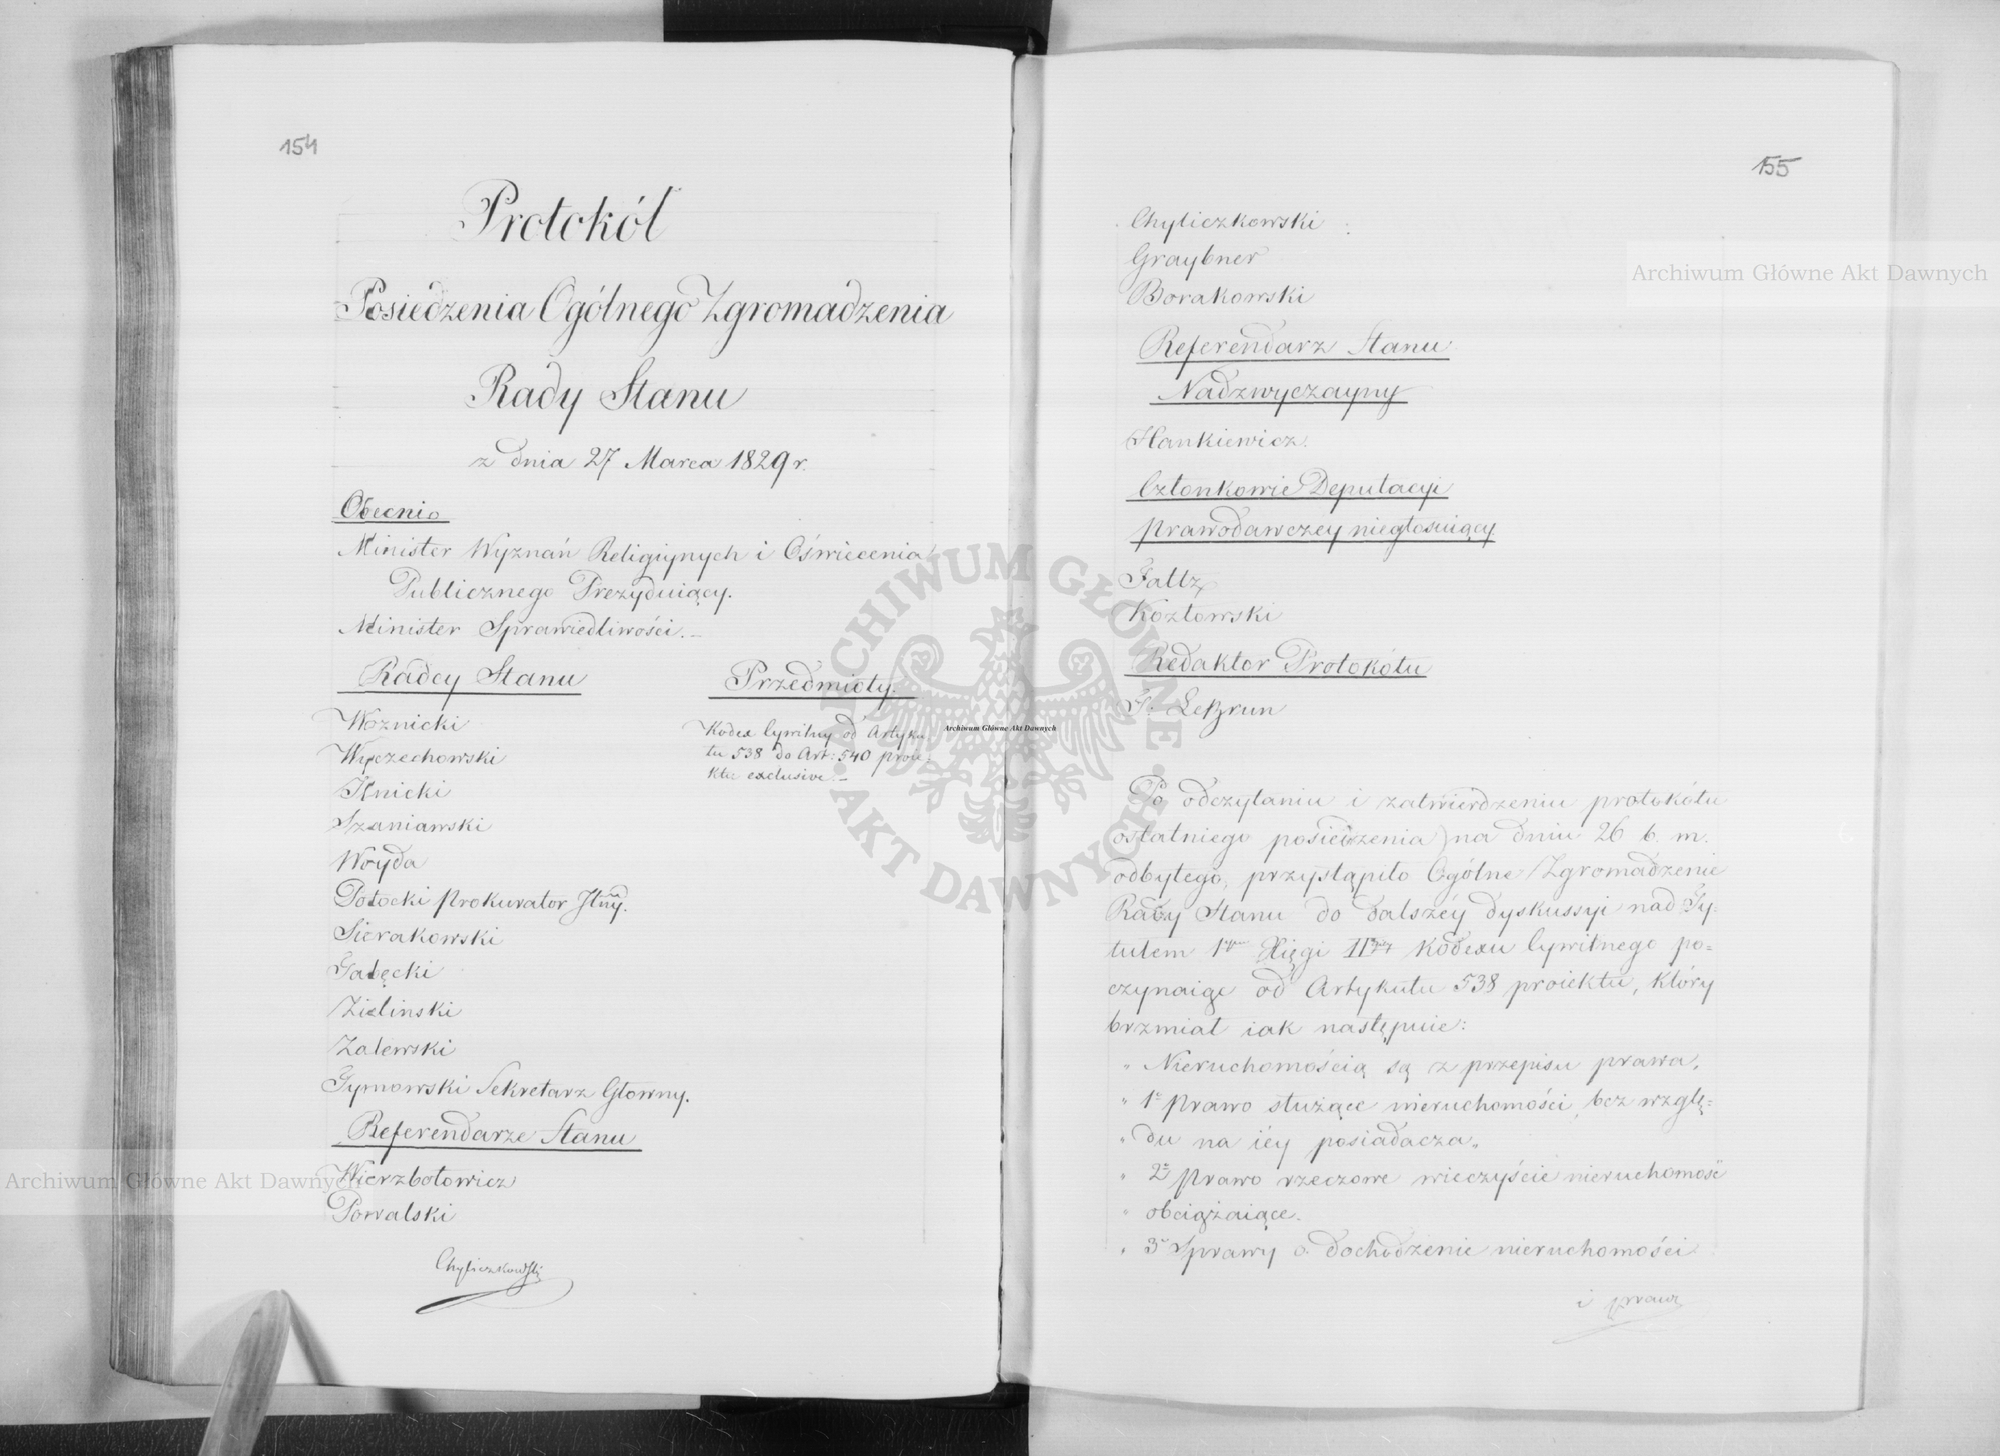 154
Protokół
Posiedzenia Ogólnego Zgromadzenia
Rady Stanu
z dnia 27 Marca 1829 r.
Obecni
Minister Wyznań Religijnych i Oświecenia
Publicznego Prezyduiący.
Minister Sprawiedliwości.
Radcy Stanu
Woznicki
Wyczechowski
Knicki
Szaniawski
Woyda
Potocki Prokurator Jlny.
Sierakowski
Gałęcki
Zieliński
Zalewski
Tymowski Sekretarz Głowny.
Referendarze Stanu
Wierzbołowicz
Powalski
Chyliczkowski
Przedmioty.
Kodex Cywilny od Artyku-
łu 538 do Art: 540 proie-
ktu exclusive.
155
Chyliczkowski
Graybner
Borakowski
Referendarz Stanu
Nadzwyczayny
Hankiewicz.
Członkowie Deputacyi
prawodawczey niegłosuiący
Faltz
Kozłowski
Redaktor Protokółu
F. LeBrun
Po odczytaniu i zatwierdzeniu protokółu
ostatniego posiedzenia na dniu 26 b. m.
odbytego, przystąpiło Ogólne Zgromadzenie
Rady Stanu do dalszéy dyskussyi nad Ty-
tułem 1ym Xięgi IIgiéy Kodexu Cywilnego po=
czynaiąc od Artykułu 538 proiektu, który
brzmiał iak następuie:
" Nieruchomością są z przepisu prawa.
" 1e prawo służące nieruchomości, bez wzglę=
" du na iéy posiadacza.
" 2e Prawo rzeczowe wieczyście nieruchomość
" obciążaiące.
" 3e Sprawy o dochodzenie nieruchomości
i prawa
Archiwum Główne Akt Dawnych
Archiwum Główne Akt Dawnych
Archiwum Główne Akt Dawnych
ARCHIWUM GŁÓWNE AKT DAWNYCH